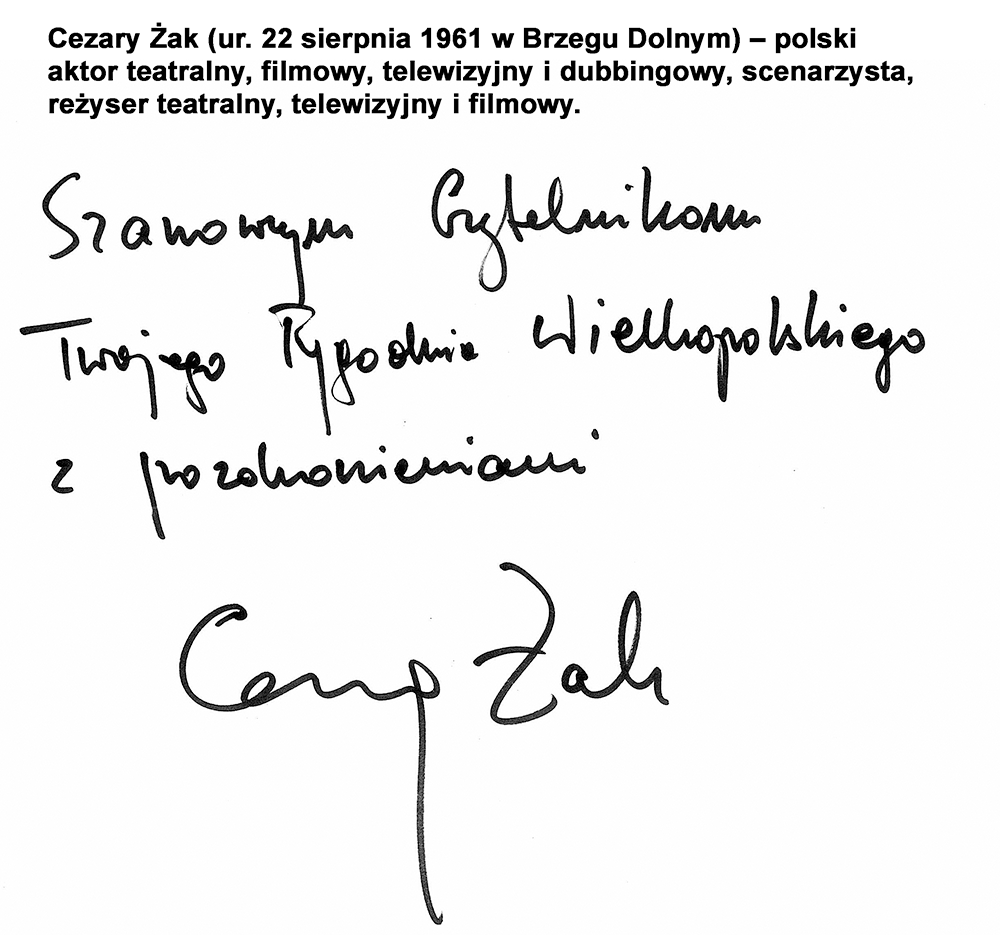 Cezary Żak (ur. 22 sierpnia 1961 w Brzegu Dolnym) – polski
aktor teatralny, filmowy, telewizyjny i dubbingowy, scenarzysta,
reżyser teatralny, telewizyjny i filmowy.
Szanownym Czytelnikom
Twojego Tygodnia Wielkopolskiego
z pozdrowieniami
Cezary Żak